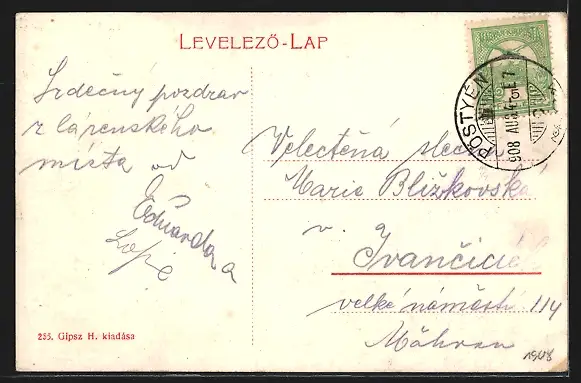 LEVELEZŐ-LAP
Srdečný pozdrav
z lázenského
místa od
Eduarda a
Velectěná slečna
Marie Blížkovská
v
Ivančicích
velké náměstí 114
Mähren
PÖSTYÉN
908 AUG
255. Gipsz H. kiadása
1908